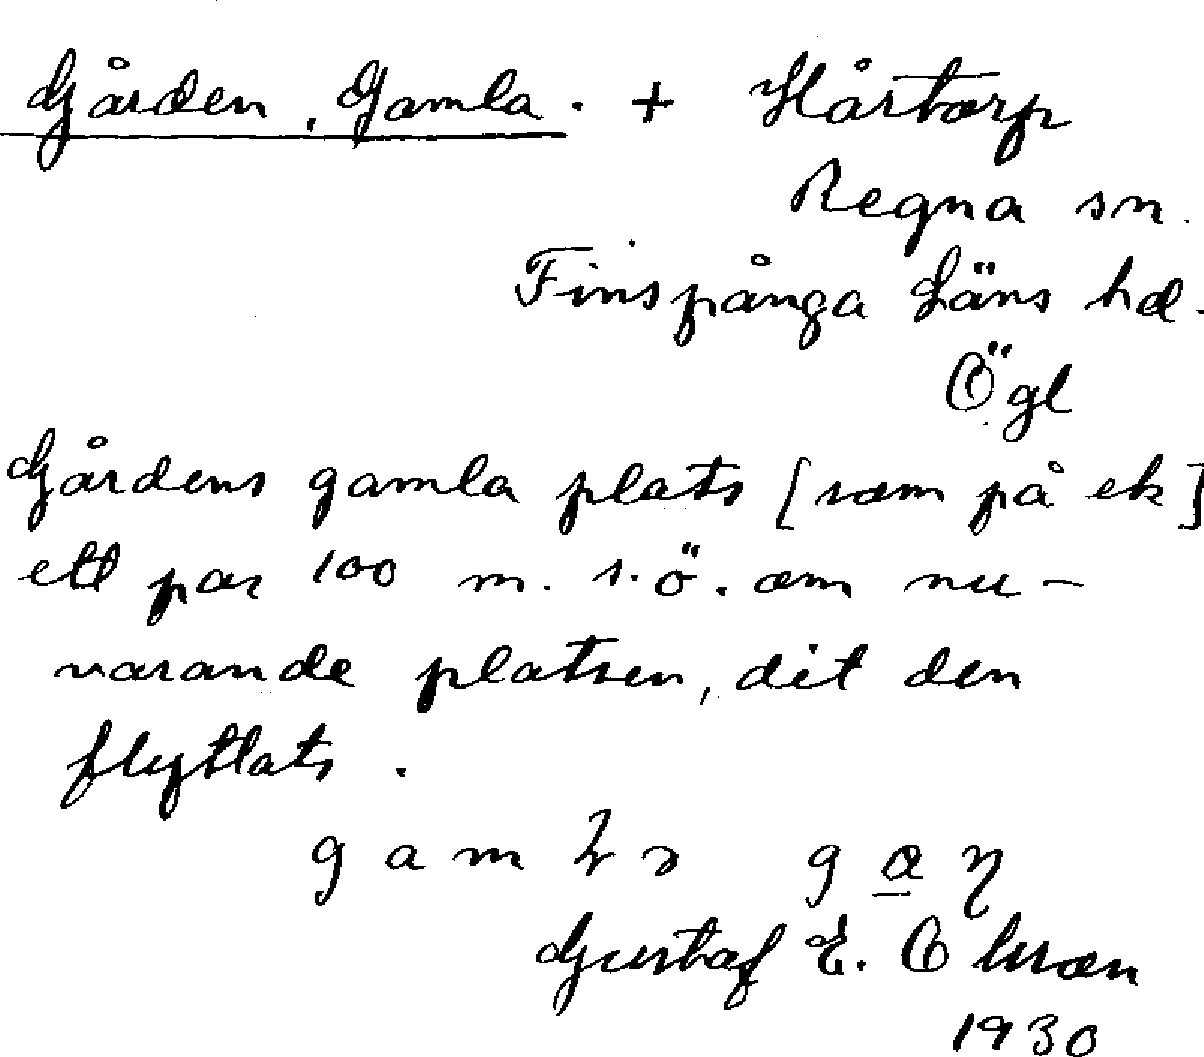 Gården, Gamla. + Hårtorp
Regna sn.
Finspånga Läns hd.
Ögl
Gårdens gamla plats [som på ek]
ett par 100 m. s.ö. om nu-
varande platsen, dit den
flyttats.
Gustaf E. Olsson
1930